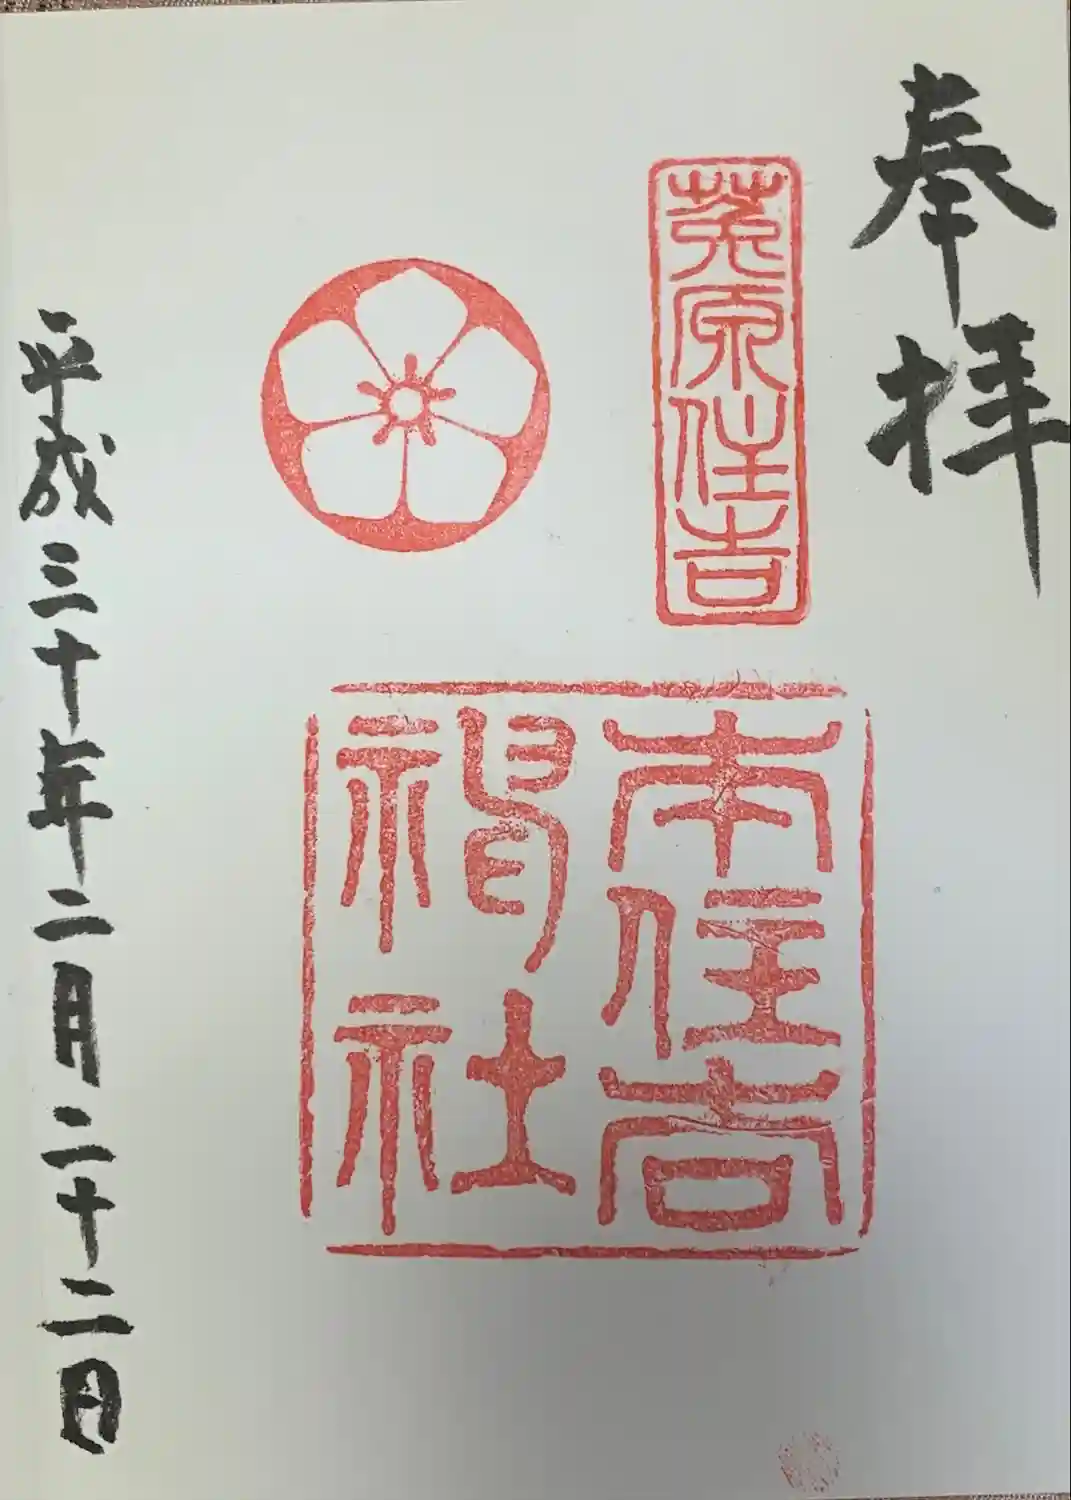 奉拝
菟原住吉
本住吉
神社
平成三十年二月二十二日